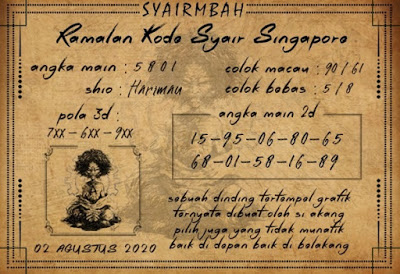 SYAIRMBAH
Ramalan Kode Syair Singapore
angka main : 5801
colok macau : 90/61
shio : HARIMAU
colok bebas : 5/8
pola 3d :
7xx - 6xx - 9xx
angka main 2d
15-95-06-80-65
68-01-58-16-89
sebuah dinding tertempel grafik
ternyata dibuat oleh si akang
pilih juga yang tidak munafik
baik di depan baik di belakang
02 AGUSTUS 2020